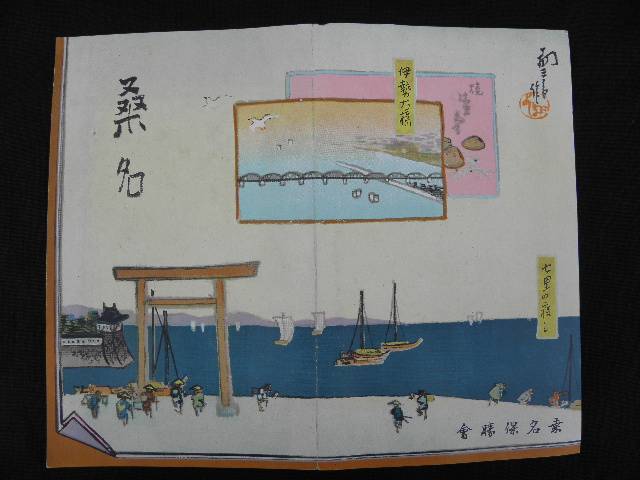 桑名
伊勢大橋
焼
七里の渡し
桑名保勝會